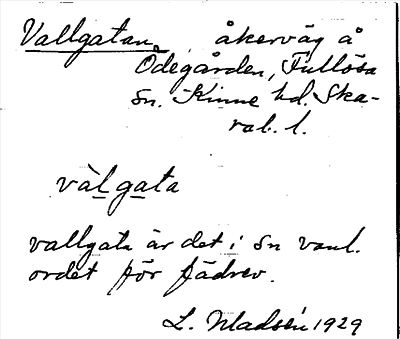 Vallgatan, åkerväg å
Ödegården, Fullösa
sn. Kinne hd. Ska-
rab. l.
välgata
vallgata är det i sn vanl.
ordet för fädrev.
L. Madsén 1929